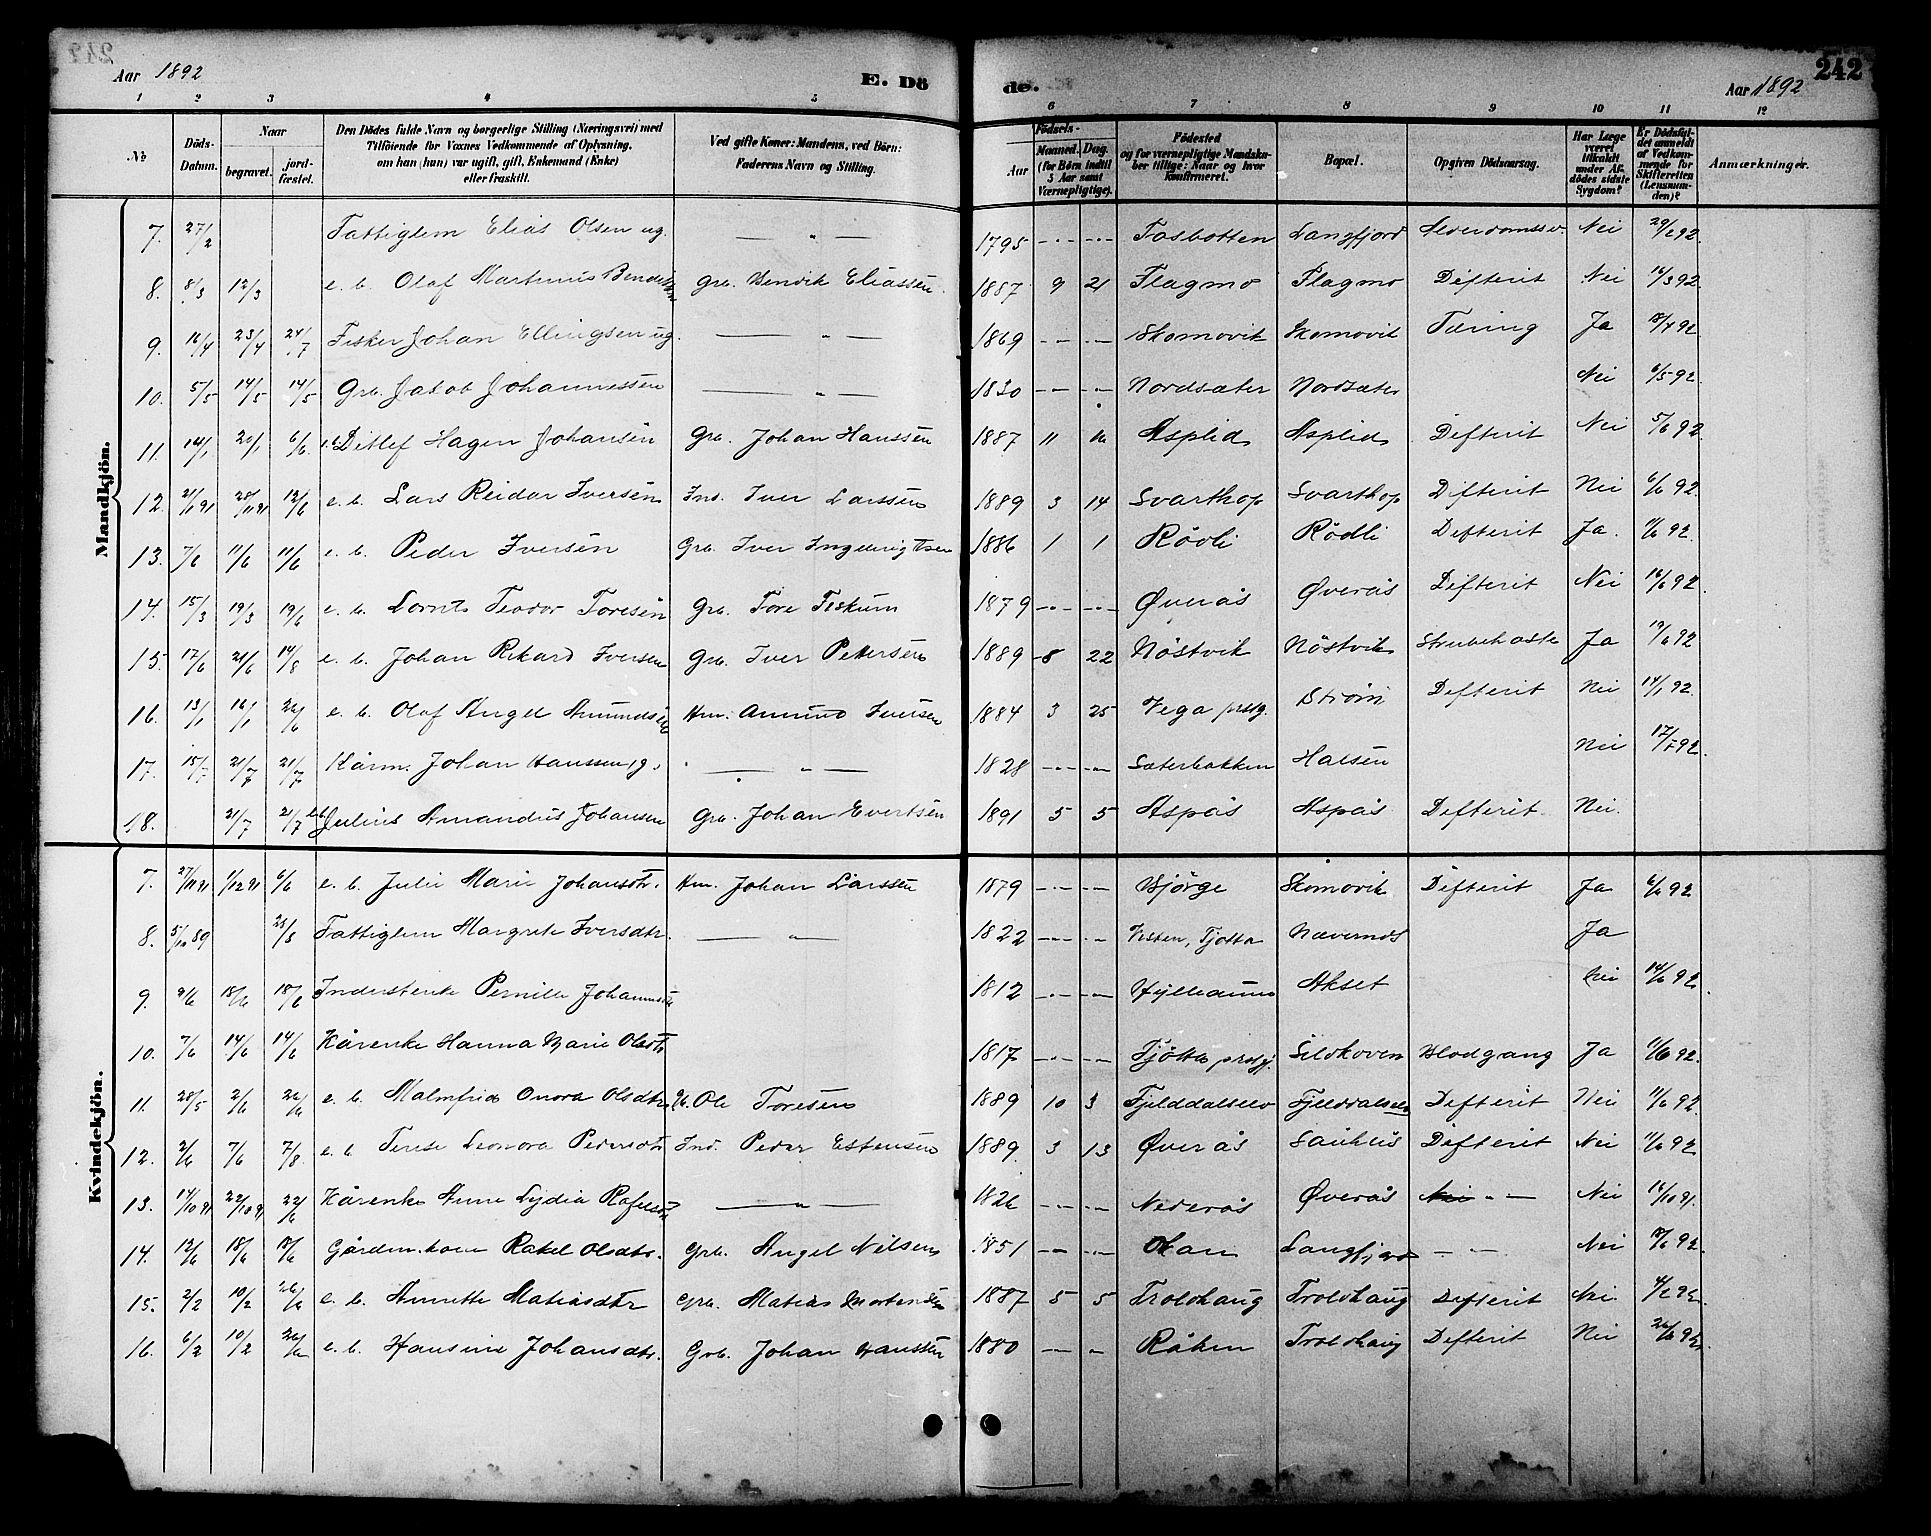 242
Aar 1892
E. Dö
de.
Aar 1892
1 2 3 4 5 6 7 8 9 10 11 12
No
Döds-Datum.
Naar
begravet.
jord-fæstet.
Den Dödes fulde Navn og borgerlige Stilling (Næringsvei) med Tilföiende for Voxnes Vedkommende af Oplysning, om han (hun) var ugift, gift, Enkemand (Enke) eller fraskilt.
Ved gifte Koner: Mandens, ved Börn: Faderens Navn og Stilling.
Födsels-
Aar
Maaned. Dag.
(for Börn indtil 5 Aar samt Værnepligtige).
Födested og for værnepligtige Mandska-ber tillige: Naar og hvor konfirmeret.
Bopæl.
Opgiven Dödsaarsag.
Har Læge været tilkaldt under Af-dödes sidste Sygdom?
Er Dödsfal-det anmeldt af Vedkom-mende for Skifteretten (Lensman-den)?
Anmærkninger.
Mandkjön.
7. 27/2 Fattiglem Elias Olsen ug. — " — 1795 Fosbotten Langfjord Alderdomssv. Nei 29/2 92
8. 8/3 12/3 e. b. Olaf Martinus Bendiksen Grb. Bendik Eliassen 1887 9 21 Flagmo Flagmo Difterit Nei 16/3 92
9. 16/4 23/4 24/7 Fisker Johan Ellingsen ug. — " — 1869 Skomovik Skomovik Tæring Ja 18/4 92
10. 5/5 14/5 14/5 Grb. Jakob Johannessen — " — 1830 Nordsæter Nordsæter Nei 6/5 92
11. 14/1 20/1 6/6 e. b. Ditlef Hagen Johansen Grb. Johan Hanssen 1887 11 16 Asplid Asplid Difterit Nei 5/6 92
12. 21/11 91 28/11 91 12/6 e. b. Lars Reidar Iversen Ind. Iver Larssen 1889 3 14 Svarthop Svarthop Difterit Nei 6/6 92
13. 7/6 11/6 11/6 e. b. Peder Iversen Grb. Iver Ingebrigtsen 1886 1 1 Rödli Rödli Difterit Ja. 11/6 92.
14. 15/3 19/3 19/6 e. b. Lornts Teodor Toresen Grb. Tore Fiskum 1879 Øverås Øverås Difterit Nei 16/6 92
15. 17/6 21/6 14/8 e. b. Johan Rikard Iversen Grb. Iver Pettersen 1889 8 22 Nöstvik Nöstvik Strubehoste Ja 19/6 92
16. 13/1 16/1 22/6 e. b. Olaf Angel Amundsen Hm. Amund Iversen 1884 3 25 Vega prstg. Ström Difterit Nei 14/1 92.
17. 15/7 21/7 21/7 Kårm. Johan Hanssen g. — " — 1828 Sæterbakken Halsen Nei 17/7 92.
18. 21/7 21/7 e. b. Julius Amandus Johansen Grb. Johan Evertsen 1891 5 5 Aspås Aspås Difterit Nei.
Kvindekjön.
7. 27/11 91 1/12 91 6/6 e. b. Julie Marie Johansdtr. Hm. Johan Larssen 1879 Bjørge Skomovik Difterit Ja 6/6 92
8. 5/10 89 Fattiglem Margrete Iversdtr. — " — 1822 Visten, Tjötta Nævernes Ja
9. 9/6 18/6 18/6 Inderstenke Pernille Johannesdtr 1812 Hylledunn Akset Nei 14/6 92
10. 7/6 14/6 14/6 Kårenke Hanna Marie Olsdtr 1817 Tjötta prstgj. Sildhoven Blodgang Ja 11/6 92.
11. 28/5 2/6 22/6 e. b. Malmfrid Onora Olsdtr Gb. Ole Toresen 1889 10 3 Fjelddalselv Fjelddalselv Difterit Nei 11/6 92.
12. 2/6 7/6 7/8 e. b. Terese Leonora Pedersdtr Ind. Peder Estensen 1889. 3 13 Øverås Sauhus Difterit Nei 11/6 92
13. 14/10 91 22/10 91 22/6 Kårenke Anne Lydia Rafelsdtr — " — 1826 Nederås Øverås Nei " — Nei 16/10 91.
14. 12/6 18/6 18/6 Gårdm. kone Rakel Olsdtr. Grb. Angel Nilsen 1851 Langfjord — " — Nei 18/6 92
15. 2/2 10/2 26/6 e. b. Annette Matiasdtr Grb. Matias Mortensen 1887 5 5 Troldhaug Troldhaug Difterit Nei 4/2 92.
16. 6/2 10/2 26/6 e. b. Hansine Johansdtr. Grb. Johan Hanssen 1880 Råken Troldhaug Difterit Nei 26/6 92.